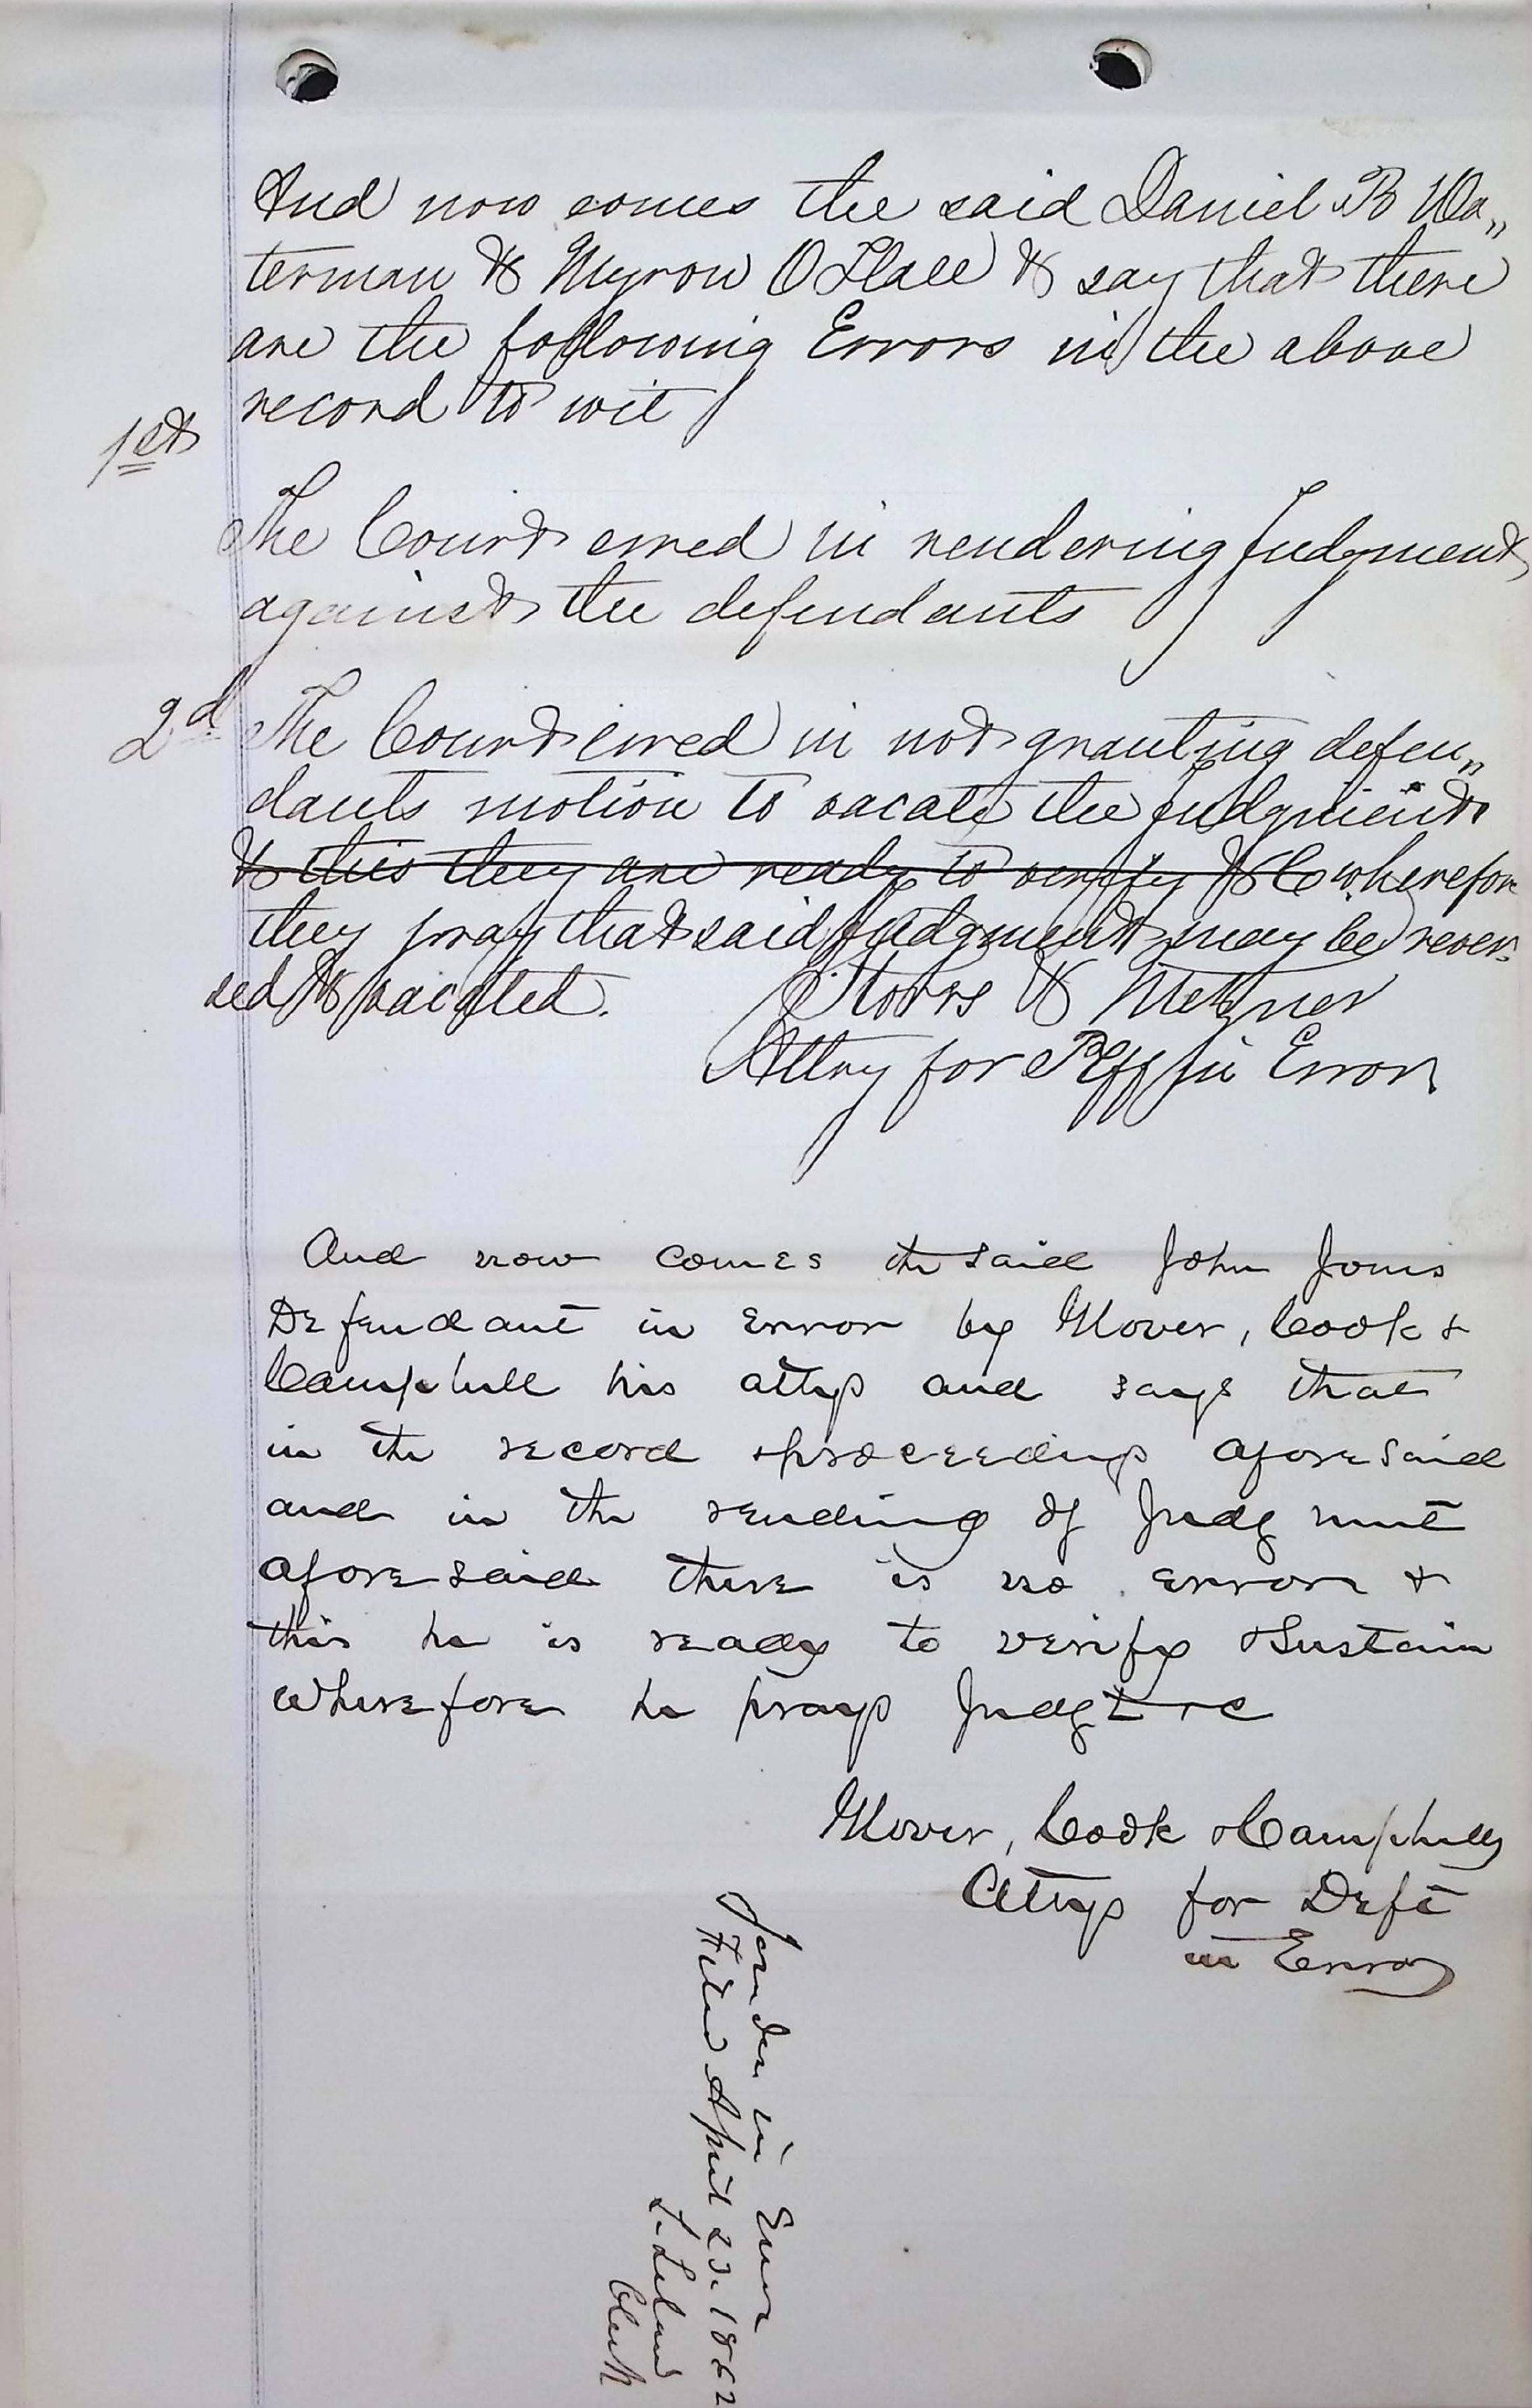 And now comes the said Daniel B Wa„
terman & Myron O Hall & say that there
are the following Errors in the above
record to wit
1st
The Court erred in rendering Judgment
against the defendants
2d The Court erred in not granting defen„
dants motion to vacate the judgment
& this they are ready to verify &C wherefore
they pray that said judgment may be rever„
sed & vacated. Storrs & Metzner
Attny for Plff in Error
And now comes the said John Jones
Defendant in Error by Glover, Cook &
Campbell his attys and says that
in the record & proceedings aforesaid
and in the rending of Judgment
aforesaid there is no error &
this he is ready to verify & Sustain
wherefore he prays Judgt &c
Glover, Cook & Campbell
Attys for Deft
in Error
Joinder in Error
Filed April 23. 1862
L. Leland
Clerk